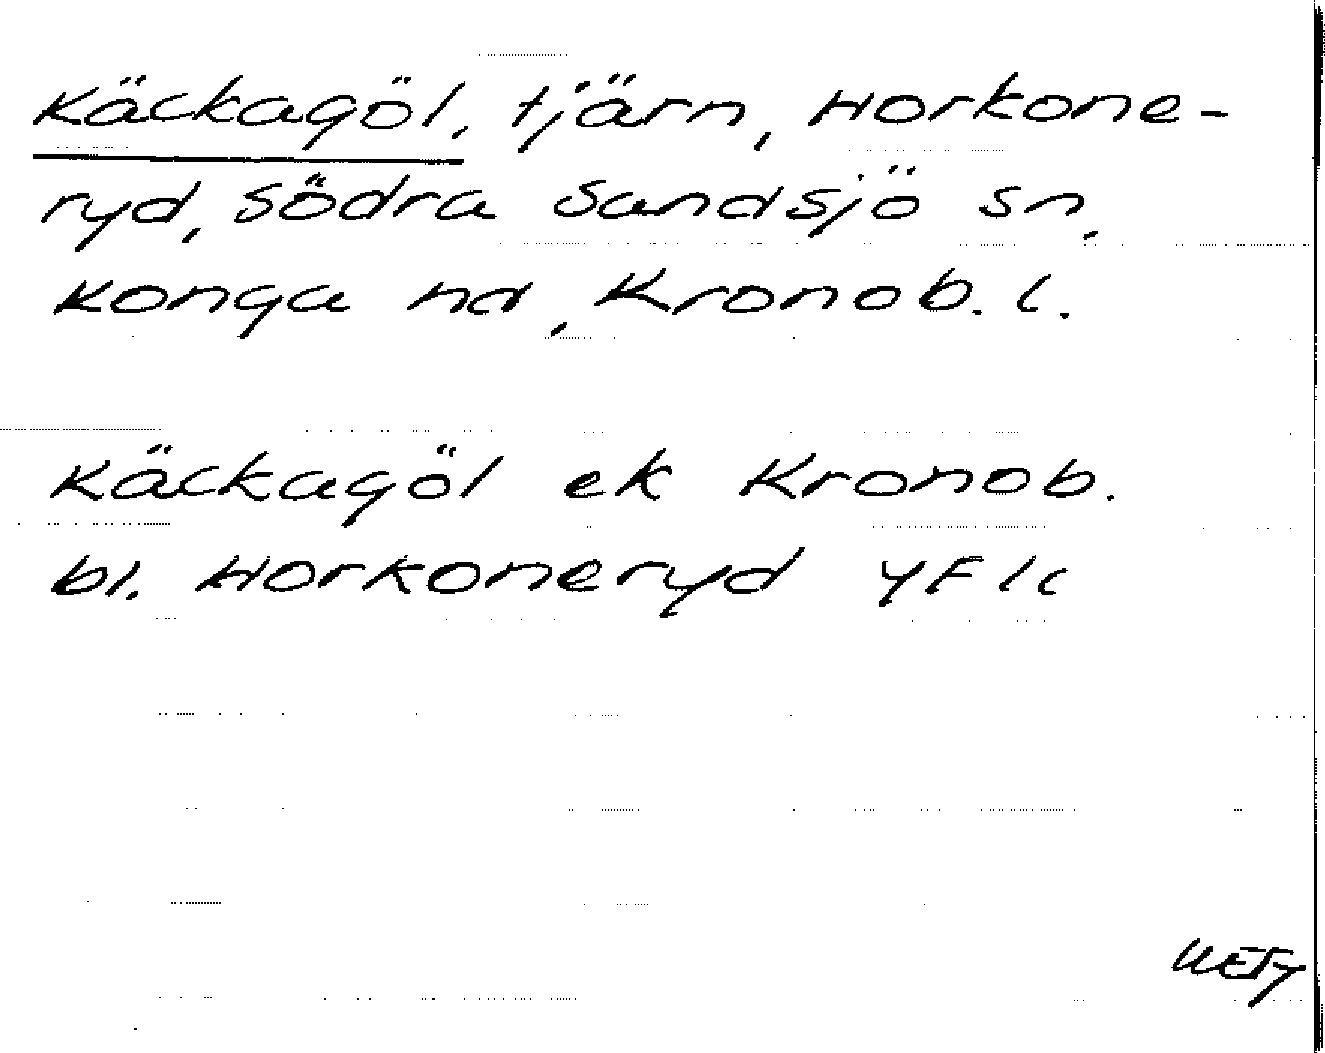 Käckagöl, tjärn, Horkone-
ryd, Södra Sandsjö sn,
Konga hd, Kronob. l.
Käckagöl ek Kronob.
bl. Horkoneryd YF